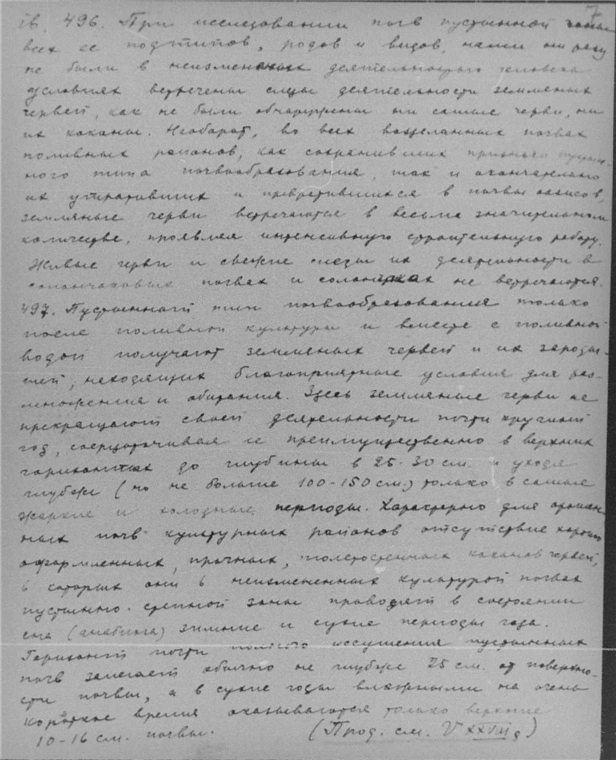 7
св. 496. При исследовании почв пустынной зоны
всех ее подтипов, родов и видов, нами ни разу
не были в неизмененных деятельностью человека
условиях встречены следы деятельности земляных
червей, как не были обнаружены ни самые черви, ни
их коконы. Наоборот, во всех возделанных почвах
поливных районов, как сохранивших признаки пустын-
ного типа почвообразования, так и окончательно
их утративших и превратившихся в почвы оазисов,
земляные черви встречаются в весьма значительном
количестве, проявляя интенсивную строительную работу.
Живые черви и свежие следы их деятельности в
солончаковых почвах и солончаках не встречаются.
497. Пустынный тип почвообразования только
после поливной культуры и вместе с поливной
водой получают земляных червей и их зароды-
шей, находящих благоприятные условия для раз-
множения и обитания. Здесь земляные черви не
прекращают своей деятельности почти круглый
год, сосредотачивая ее преимущественно в верхних
горизонтах до глубины в 25-30 см. и уходя
глубже (но не больше 100-150 см.) только в самые
жаркие и холодные периоды. Характерно для орошен-
ных почв культурных районов отсутствие хорошо
оформленных, прочных, толстостенных коконов червей,
в которых они в неизмененных культурой почвах
пустынно-степной зоны проводят в состоянии
сна (анабиоза) зимние и сухие периоды года.
Горизонт почти полного иссушения пустынных
почв залегает обычно не глубже 25 см. от поверхно-
сти почвы, а в сухие годы влажными на очень
короткое время оказываются только верхние
10-16 см. почвы. (Прод. см. V XXVIII)